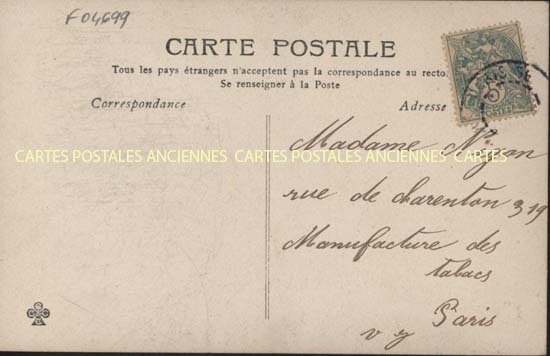 F04699
CARTE POSTALE
Tous les pays étrangers n'acceptent pas la correspondance au recto.
Se renseigner à la Poste
Correspondance
Adresse
CARTES POSTALES ANCIENNES CARTES POSTALES ANCIENNES CARTES
Madame
rue de charenton 319
Manufacture des
tabacs
Paris